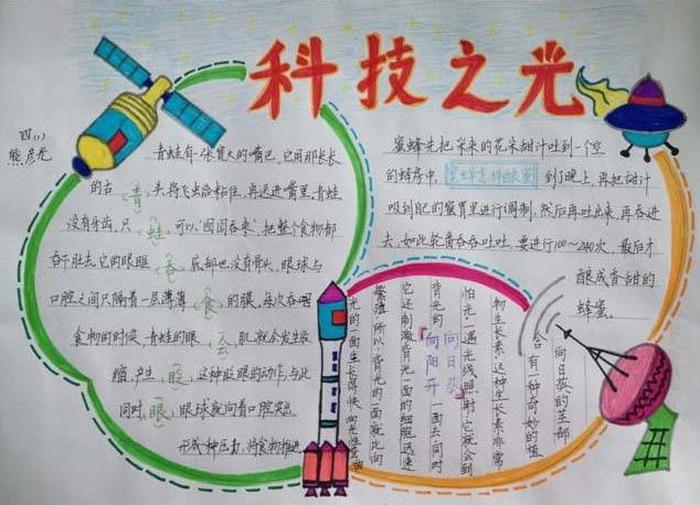 科技之光
四(1)
熊彦尧
青蛙有一张宽大的嘴巴，它用那长长
的舌头将飞虫给粘住，再送进嘴里，青蛙
没有牙齿，只可以“囫囵吞枣”，把整个食物都
吞下肚去，它的眼眶底部也没有骨头，眼球与
口腔之间只隔着一层薄薄的膜，每次吞咽
食物的时候，青蛙的眼肌就会发生收
缩，产生这种眨眼的动作，与此
同时，眼球就向着口腔突出，
形成一种压力，将食物推进
青
蛙
吞
食
会
眨
眼
蜜蜂先把采来的花朵甜汁吐到一个空
的蜂房中，到了晚上，再把甜汁
吸到自己的蜜胃里进行调制，然后再吐出来，再吞进
去，如此轮番吞吞吐吐，要进行100～240次，最后才
酿成香甜的
蜂蜜。
蜜蜂怎样酿蜜
向日葵的茎部
含有一种奇妙的植
物生长素。这种生长素非常
怕光。一遇光线照射，它就会到
背光的一面去，同时
它还刺激背光一面的细胞迅速
繁殖，所以，背光的一面就比向
光的一面生长得快，向
向日葵
向阳开